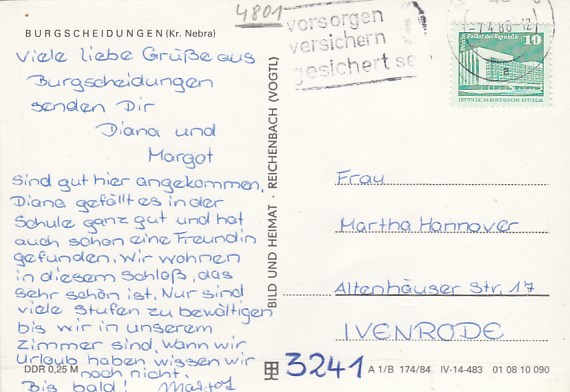 4801
BURGSCHEIDUNGEN (Kr. Nebra)
Viele liebe Grüße aus
Burgscheidungen
senden Dir
Diana und
Margot
sind gut hier angekommen,
Diana gefällt es in der
Schule ganz gut und hat
auch schon eine Freundin
gefunden. Wir wohnen
in diesem Schloß, das
sehr schön ist. Nur sind
viele Stufen zu bewältigen
bis wir in unserem
Zimmer sind. Wann wir
Urlaub haben wissen wir
noch nicht.
Bis bald! Margot
DDR 0,25 M
BILD UND HEIMAT · REICHENBACH (VOGTL)
vorsorgen
versichern
gesichert se
-7.4.86-12
a
Palast der Republik
10
DEUTSCHE DEMOKRATISCHE REPUBLIK
Frau
Martha Hannover
Altenhäuser Str. 17
IVENRODE
3241
A 1/B 174/84 IV-14-483 01 08 10 090